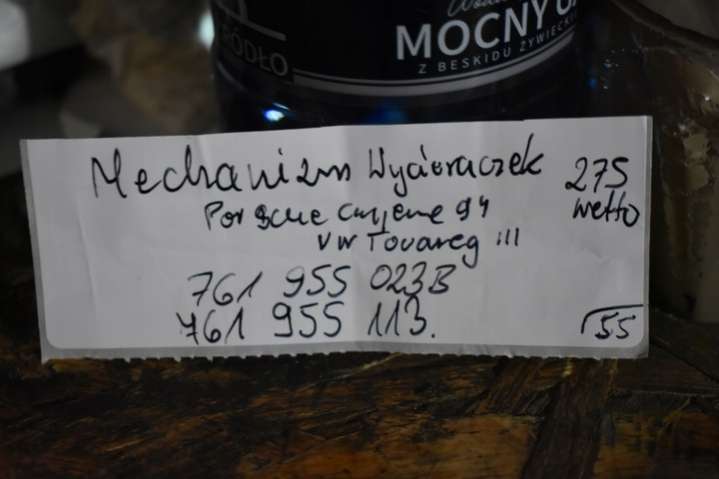 MOCNY
Z BESKIDU ŻYWIECKI
RÓDŁO
Mechanizm Wycieraczek 275
Porsche Cayenne 9Y netto
VW Touareg III
761 955 023B
761 955 113.
55